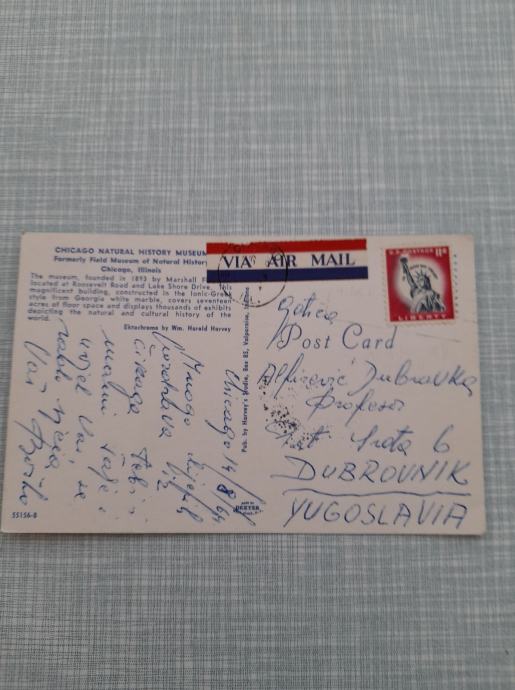 CHICAGO NATURAL HISTORY MUSEUM
Formerly Field Museum of Natural History
Chicago, Illinois
The museum, founded in 1893 by Marshall F
located at Roosevelt Road and Lake Shore Drive. This
magnificent building, constructed in the Ionic-Greek
style from Georgia white marble, covers seventeen
acres of floor space and displays thousands of exhibits
depicting the natural and cultural history of the
world.
Ektachrome by Wm. Harold Harvey
Chicago 14/8/64
Mnogo lijepih
pozdrava iz
Čikaga Tebi i
mami šalje i
uvijek Vas se
rado sjeća
Vaš
55156-B
Pub. by Harvey's Studio, Box 85, Valparaiso,
DEXTER
VIA AIR MAIL
U.S. POSTAGE 11¢
LIBERTY
Post Card
Dubravka
Profesor
6
DUBROVNIK
YUGOSLAVIA